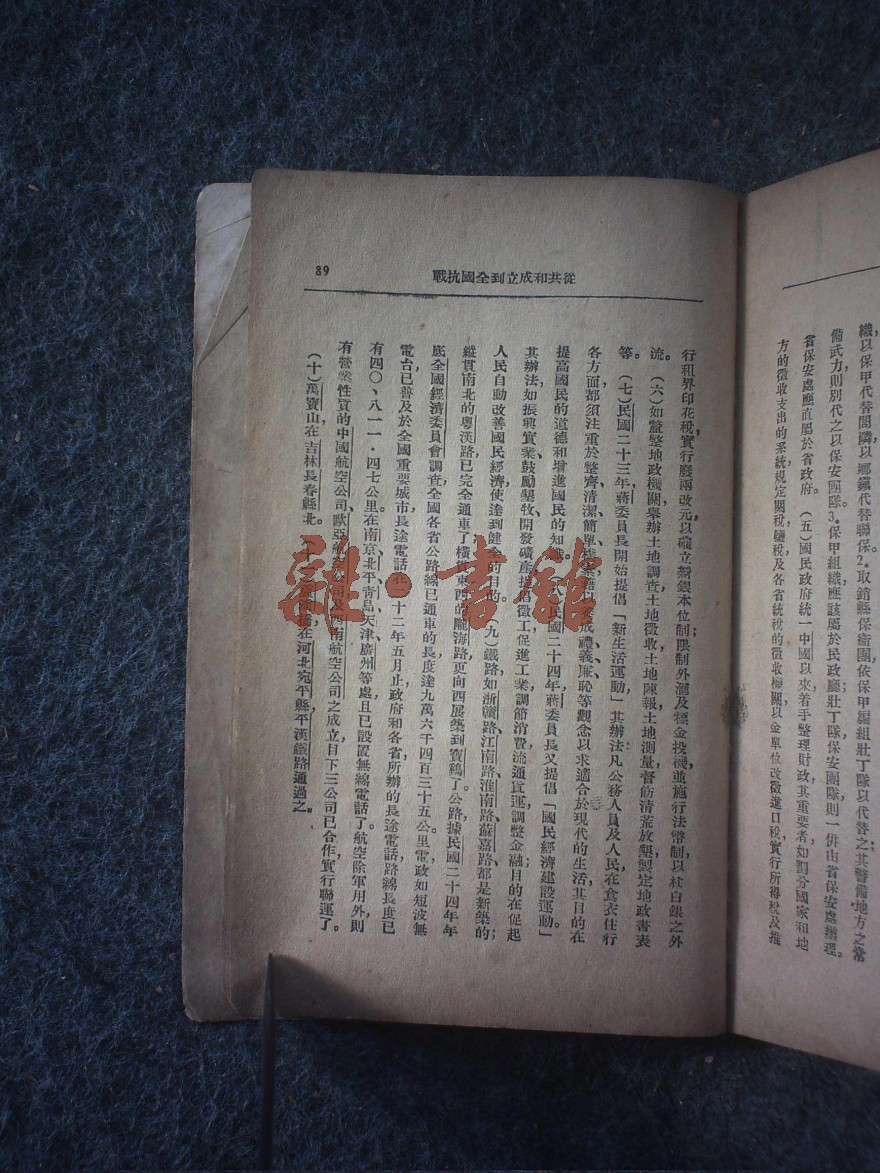 織，以保甲代替閭隣，以鄉鎮代替聯保。2.取銷縣保衛團，依保甲編組壯丁隊以代替之；其警備地方之常
備武力，則別代之以保安團隊。3.保甲組織應該屬於民政廳，壯丁隊、保安團隊則一併由省保安處辦理。
省保安處應直屬於省政府。（五）國民政府統一中國以來，着手整理財政，其重要者如劃分國家和地
方的徵收支出的系統，規定關稅鹽稅及各省統稅的徵收機關，以金單位改徵進口稅，實行所得稅及推
從共和成立到全國抗戰
89
行租界印花稅，實行廢兩改元，以確立新銀本位制，限制外滙及標金投機，並施行法幣制，以杜白銀之外
流。（六）如釐整地政機關，舉辦土地調查、土地徵收、土地陳報、土地測量，督飭清荒放墾，製定地政書表
等。（七）民國二十三年，蔣委員長開始提倡「新生活運動」其辦法：凡公務人員及人民，在食衣住行
各方面，都須注重於整齊、清潔、簡單、樸素，藉以養成禮、義、廉、恥等觀念，以求適合於現代的生活；其目的在
提高國民的道德和增進國民的知識。（八）民國二十四年，蔣委員長又提倡「國民經濟建設運動。」
其辦法，如振興實業，鼓勵墾牧，開發礦產，提倡徵工，促進工業，調節消費，流通貨運，調整金融；目的在促起
人民自動改善國民經濟，使達到健全的目的。（九）鐵路如浙贛路、江南路、淮南路、蘇嘉路，都是新築的；
縱貫南北的粵漢路，已完全通車了；橫貫東西的隴海路，更向西展築到寶鷄了。公路據民國二十四年年
底全國經濟委員會調查，全國各省公路綫已通車的長度，達九萬六千四百三十五公里。電政如短波無
電台，已普及於全國重要城市，長途電話在二十二年五月止，政府和各省所辦的長途電話，路綫長度已
有四〇、八一一·四七公里。在南京、北平、青島、天津、廣州等處，且已設置無綫電話了。航空除軍用外，則
有營業性質的中國航空公司、歐亞航空公司及西南航空公司之成立，目下三公司已合作，實行聯運了。
（十）萬寶山在吉林長春縣北。（十一）橋在河北宛平縣，平漢鐵路通過之。
雜·書館